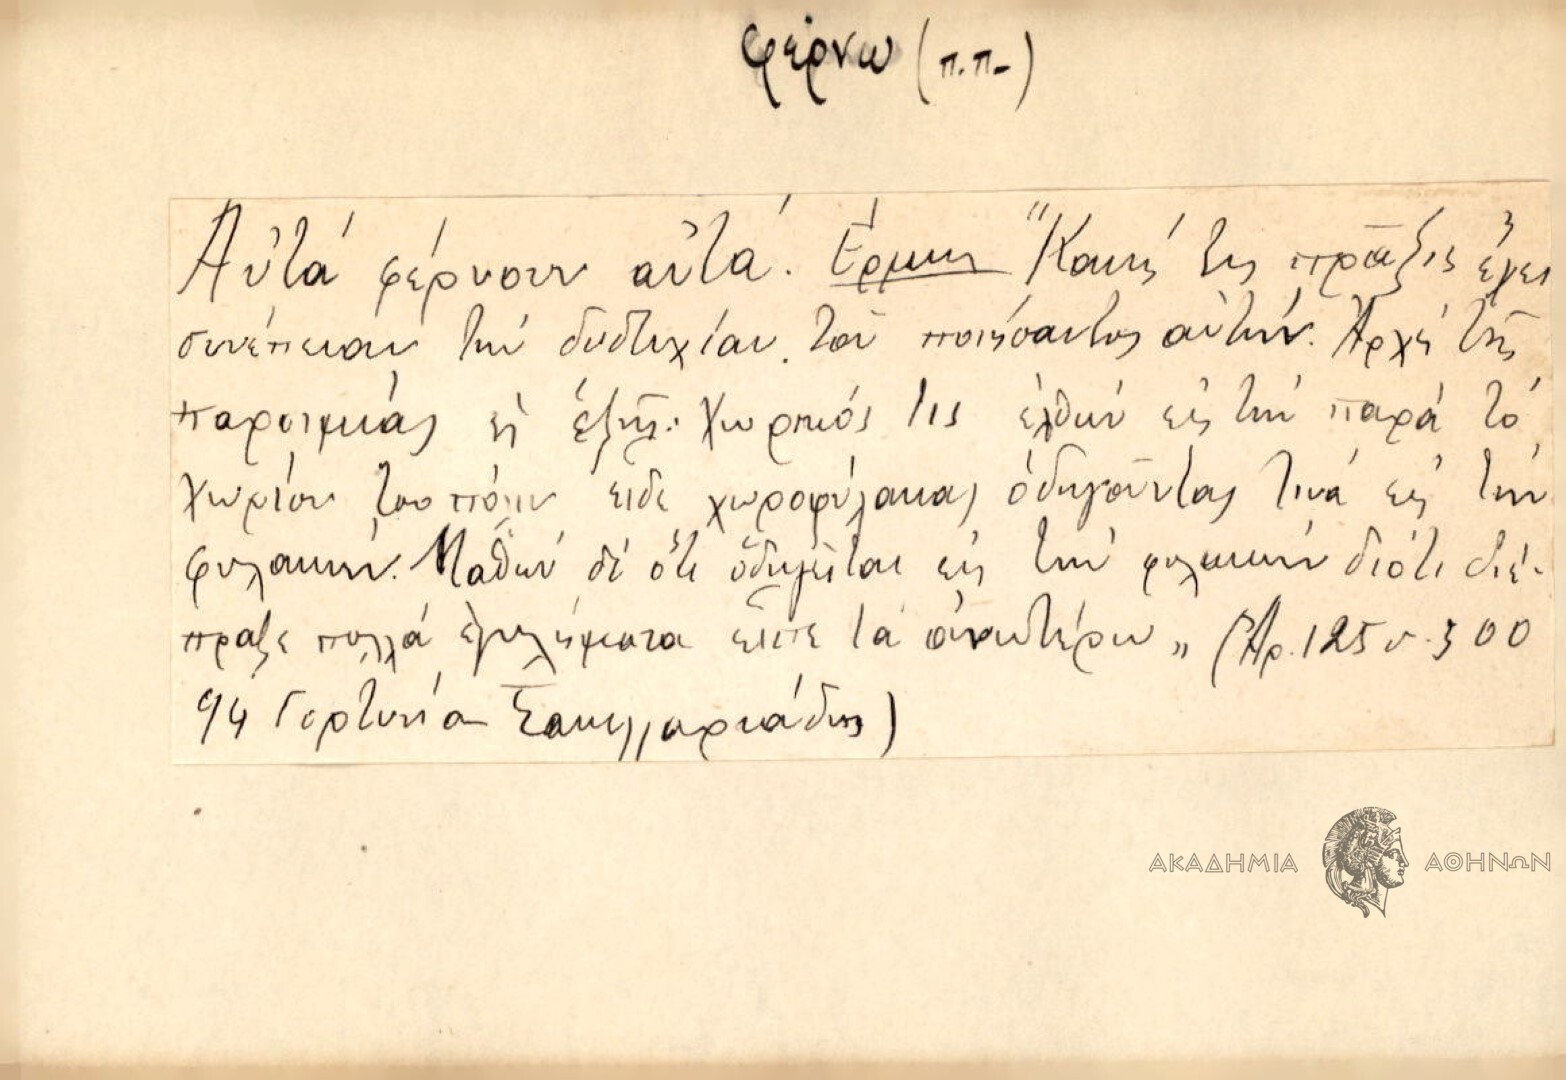 φέρνω (π.π-)
Αὐτά φέρνουν αὐτά. Ἑρμην "Κακή τις πρᾶξις ἔχει
συνέπειαν τήν δυστυχίαν τοῦ ποιήσαντος αὐτήν. Ἀρχή τῆς
παροιμίας ἡ ἑξῆς: Χωρικός τις ἐλθών εἰς τήν παρά τό
χωρίον του πόλιν εἶδε χωροφύλακας ὁδηγοῦντας τινά εἰς τήν
φυλακήν. Μαθών δέ ὅτι ὁδηγεῖται εἰς τήν φυλακήν διότι διέ-
πραξε πολλά ἐγκλήματα εἶπε τά ἀνωτέρω" (Ἀρ. 125 σ. 300
94 Γορτυνία Σακελλαριάδης)
ΑΚΑΔΗΜΙΑ ΑΘΗΝΩΝ